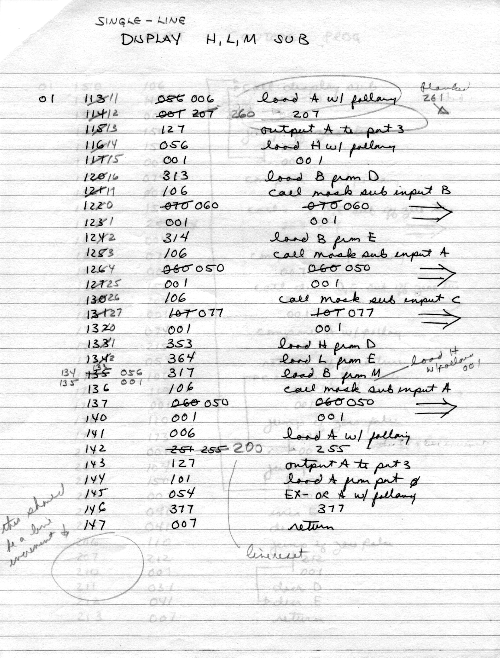 SINGLE-LINE
DISPLAY H,L,M SUB
01 11311 056 006 load A w/ following
11412 007 207 260 207 261
11513 127 output A to port 3
11614 056 load H w/ following
11715 001 001
12016 313 load B from D
12117 106 call mask sub input B
1220 070 060 070 060
1231 001 001
1242 314 load B from E
1253 106 call mask sub input A
1264 060 050 060 050
12725 001 001
13026 106 call mask sub input C
13127 107 077 107 077
1320 001 001
1331 353 load H from D
1342 364 load L from E
135 317 load B from M load H w/ follow 001
134 135 056 001
136 106 call mask sub input A
137 060 050 060 050
140 001 001
141 006 load A w/ following
142 251 255 200 255
143 127 output A to port 3
144 101 load A from port 0
145 054 EX-OR A w/ following
146 377 377
147 007 return
this should be a line increment
line reset